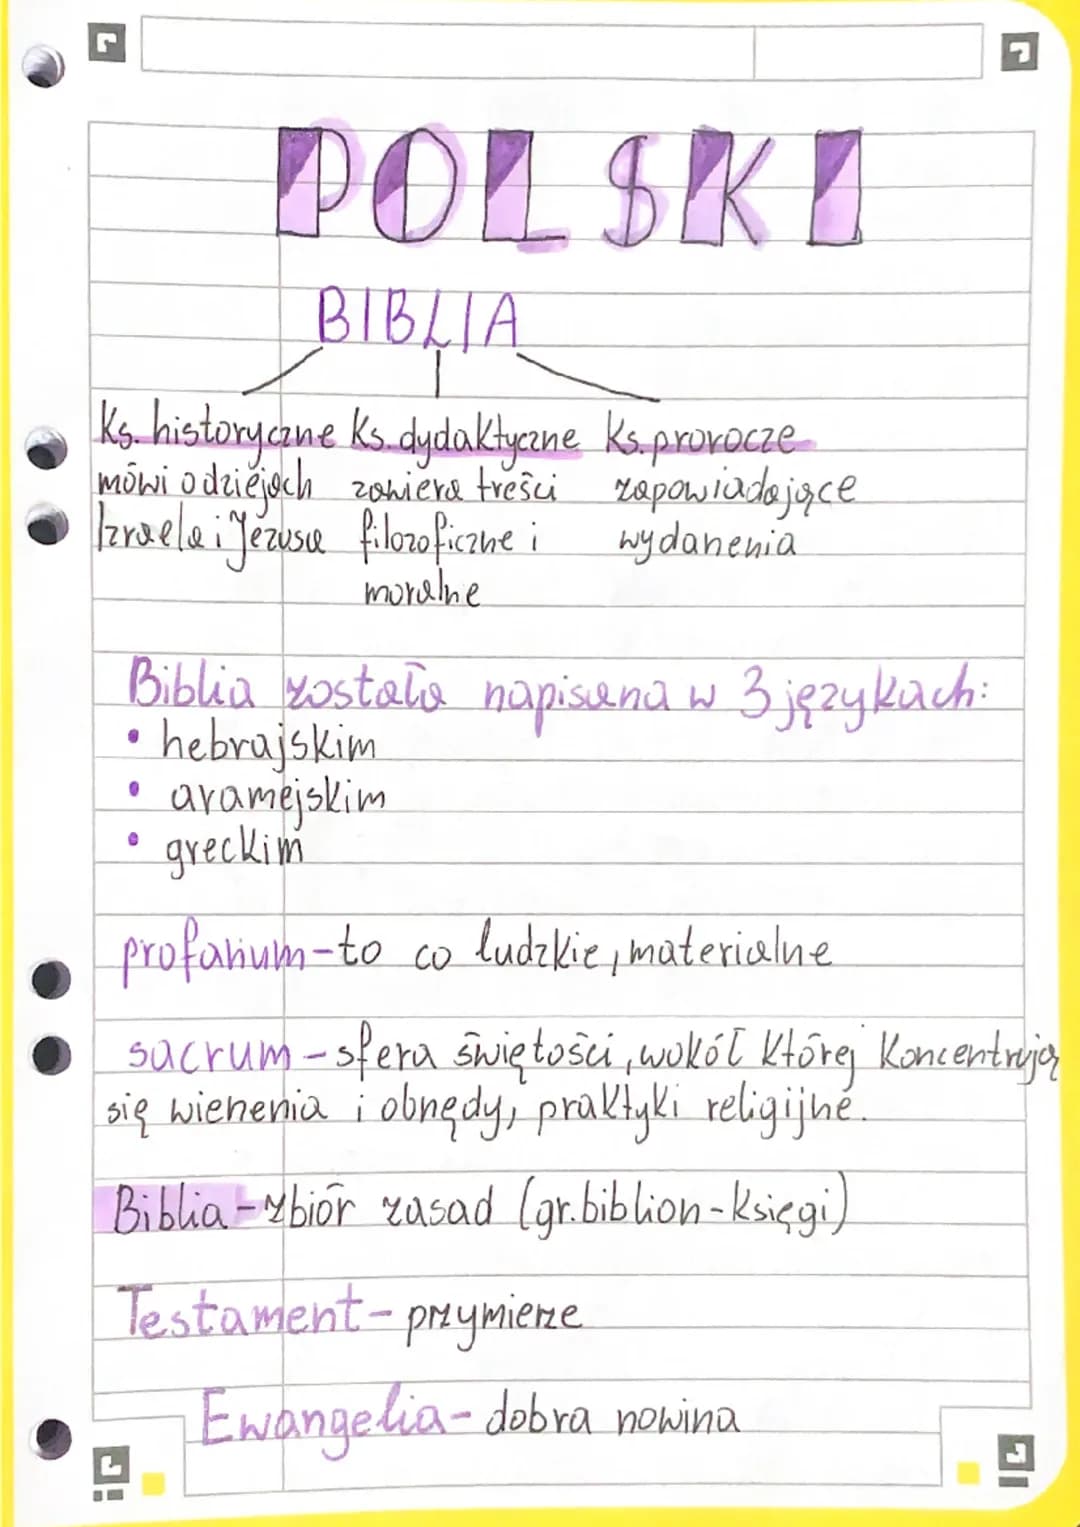 POLSKI
BIBLIA
Ks. historyczne Ks. dydaktyczne Ks. prorocze
mówi o dziejach zawiera treści zapowiadające
Izraela i Jezusa filozoficzne i wydarzenia
moralne
Biblia została napisana w 3 językach:
• hebrajskim
• aramejskim
• greckim
profanum - to co ludzkie, materialne
sacrum - sfera świętości, wokół której koncentrują
się wierzenia i obrzędy, praktyki religijne.
Biblia - zbiór zasad (gr. biblion - księgi)
Testament - przymierze
Ewangelia - dobra nowina